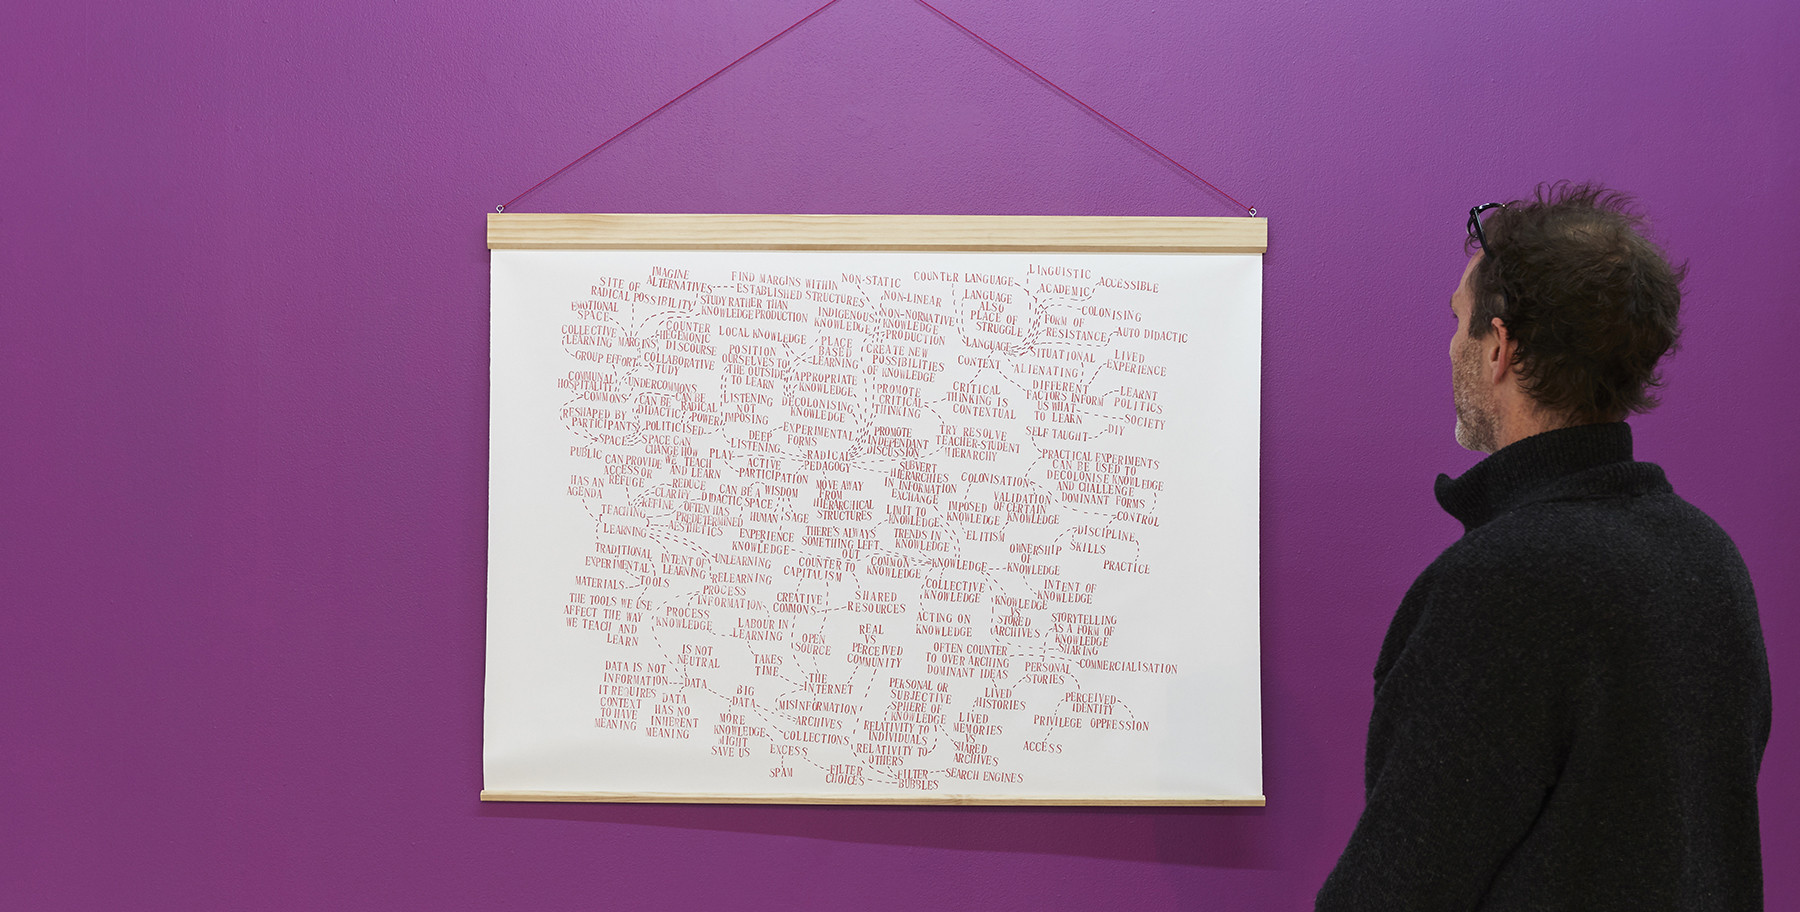 IMAGINE
ALTERNATIVES
SITE OF
RADICAL POSSIBILITY
EMOTIONAL
SPACE
COLLECTIVE
LEARNING
MARGINS
GROUP EFFORT
COMMUNAL
HOSPITALITY
COMMONS
RESHAPED BY
PARTICIPANTS
SPACE
FIND MARGINS WITHIN
ESTABLISHED STRUCTURES
STUDY RATHER THAN
KNOWLEDGE PRODUCTION
COUNTER
HEGEMONIC
DISCOURSE
COLLABORATIVE
STUDY
UNDERCOMMONS
CAN BE
DIDACTIC
CAN BE
RADICAL
POWER
POLITICISED
SPACE CAN
CHANGE HOW
WE TEACH
AND LEARN
PUBLIC
CAN PROVIDE
ACCESS OR
REFUGE
LOCAL KNOWLEDGE
POSITION
OURSELVES TO
THE OUTSIDE
TO LEARN
LISTENING
NOT
IMPOSING
DEEP
LISTENING
PLAY
ACTIVE
PARTICIPATION
INDIGENOUS
KNOWLEDGE
PLACE
BASED
LEARNING
APPROPRIATE
KNOWLEDGE
DECOLONISING
KNOWLEDGE
EXPERIMENTAL
FORMS
RADICAL
PEDAGOGY
NON-STATIC
NON-LINEAR
NON-NORMATIVE
KNOWLEDGE
PRODUCTION
CREATE NEW
POSSIBILITIES
OF KNOWLEDGE
PROMOTE
CRITICAL
THINKING
PROMOTE
INDEPENDANT
DISCUSSION
SUBVERT
HIERARCHIES
IN INFORMATION
EXCHANGE
MOVE AWAY
FROM
HIERARCHICAL
STRUCTURES
TRY RESOLVE
TEACHER-STUDENT
HIERARCHY
COUNTER LANGUAGE
LINGUISTIC
ACADEMIC
ACCESSIBLE
LANGUAGE
ALSO
PLACE OF
STRUGGLE
COLONISING
FORM OF
RESISTANCE
AUTO DIDACTIC
LANGUAGE
SITUATIONAL
LIVED
EXPERIENCE
CONTEXT
ALIENATING
CRITICAL
THINKING IS
CONTEXTUAL
DIFFERENT
FACTORS INFORM
US WHAT
TO LEARN
LEARNT
POLITICS
SOCIETY
SELF TAUGHT
DIY
PRACTICAL EXPERIMENTS
CAN BE USED TO
DECOLONISE KNOWLEDGE
AND CHALLENGE
DOMINANT FORMS
COLONISATION
IMPOSED
KNOWLEDGE
VALIDATION
OF CERTAIN
KNOWLEDGE
CONTROL
DISCIPLINE
SKILLS
PRACTICE
HAS AN
AGENDA
TEACHING
LEARNING
REDUCE
CLARIFY
REFINE
DIDACTIC
OFTEN HAS
PREDETERMINED
AESTHETICS
CAN BE A
SPACE
WISDOM
HUMAN
SAGE
EXPERIENCE
KNOWLEDGE
THERE'S ALWAYS
SOMETHING LEFT
OUT
LIMIT TO
KNOWLEDGE
TRENDS IN
KNOWLEDGE
ELITISM
COMMON
KNOWLEDGE
KNOWLEDGE
OWNERSHIP
OF
KNOWLEDGE
INTENT OF
KNOWLEDGE
TRADITIONAL
EXPERIMENTAL
MATERIALS
TOOLS
INTENT OF
LEARNING
UNLEARNING
RELEARNING
PROCESS
INFORMATION
PROCESS
KNOWLEDGE
THE TOOLS WE USE
AFFECT THE WAY
WE TEACH AND
LEARN
COUNTER TO
CAPITALISM
CREATIVE
COMMONS
SHARED
RESOURCES
LABOUR IN
LEARNING
TAKES
TIME
OPEN
SOURCE
REAL
VS
PERCEIVED
COMMUNITY
COLLECTIVE
KNOWLEDGE
ACTING ON
KNOWLEDGE
KNOWLEDGE
VS
STORED
ARCHIVES
STORYTELLING
AS A FORM OF
KNOWLEDGE
SHARING
OFTEN COUNTER
TO OVER ARCHING
DOMINANT IDEAS
PERSONAL
STORIES
COMMERCIALISATION
IS NOT
NEUTRAL
DATA IS NOT
INFORMATION
IT REQUIRES
CONTEXT
TO HAVE
MEANING
DATA
DATA
HAS NO
INHERENT
MEANING
BIG
DATA
MORE
KNOWLEDGE
MIGHT
SAVE US
THE
INTERNET
MISINFORMATION
ARCHIVES
COLLECTIONS
EXCESS
SPAM
FILTER
CHOICES
FILTER
BUBBLES
SEARCH ENGINES
PERSONAL OR
SUBJECTIVE
SPHERE OF
KNOWLEDGE
RELATIVITY TO
INDIVIDUALS
RELATIVITY TO
OTHERS
LIVED
HISTORIES
LIVED
MEMORIES
VS
SHARED
ARCHIVES
PERCEIVED
IDENTITY
PRIVILEGE
OPPRESSION
ACCESS